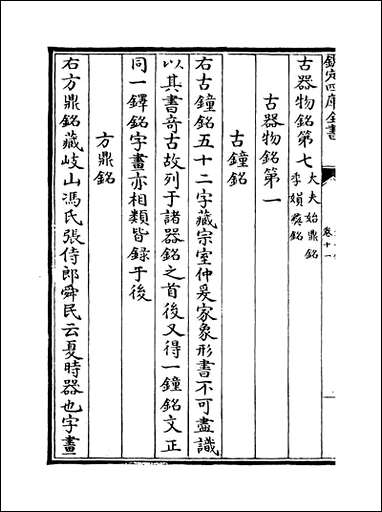 欽定四庫全書
卷十一
古器物銘第七 大夫始鼎銘
季娟鼎銘
古器物銘第一
古鐘銘
右古鐘銘五十二字藏宗室仲爰家象形書不可盡識
以其書奇古故列于諸器銘之首後又得一鐘銘文正
同一鐸銘字畫亦相類皆錄于後
方鼎銘
右方鼎銘藏岐山馮氏張侍郎舜民云夏時器也字畫